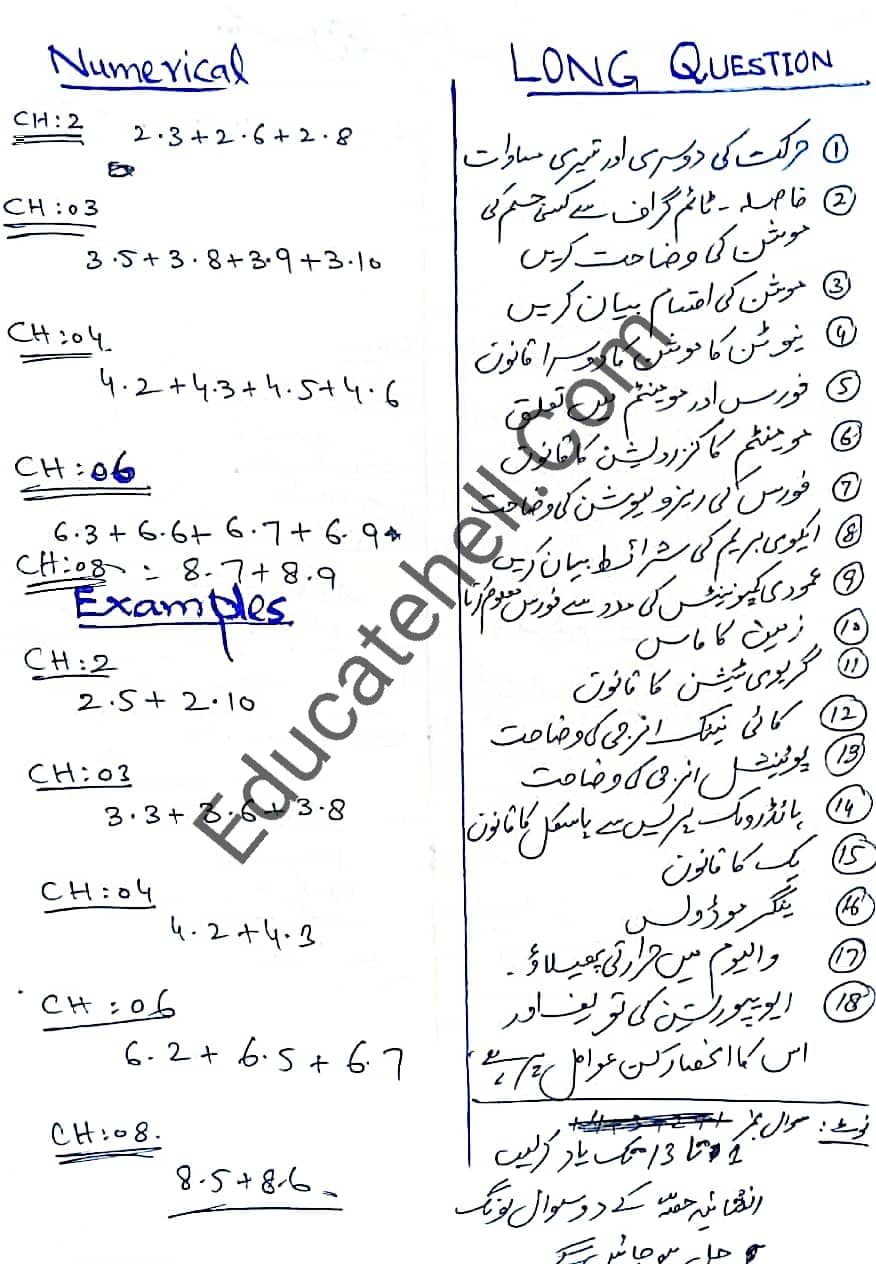 Numerical
CH:2
2.3+2.6+2.8
CH:03
3.5+3.8+3.9+3.10
CH:04
4.2+4.3+4.5+4.6
CH:06
6.3+6.6+6.7+6.9
CH:08 = 8.7+8.9
Examples
CH:2
2.5+2.10
CH:03
3.3+3.6+3.8
CH:04
4.2+4.3
CH:06
6.2+6.5+6.7
CH:08.
8.5+8.6
LONG QUESTION
① حرکت کی دوسری اور تیسری مساوات
② فاصلہ - ٹائم گراف سے کسی جسم کی
موشن کی وضاحت کریں
③ موشن کی اقسام بیان کریں
④ نیوٹن کا موشن کا دوسرا قانون
⑤ فورس اور مومینٹم میں تعلق
⑥ مومینٹم کا کنزرویشن کا قانون
⑦ فورس کی ریزولیوشن کی وضاحت
⑧ ایکوی بریم کی شرائط بیان کریں
⑨ عمودی کمپونینٹس کی مدد سے فورس معلوم کرنا
⑩ زمین کا ماس
⑪ گریوی ٹیشن کا قانون
⑫ کائی نیٹک انرجی کی وضاحت
⑬ پوٹینشل انرجی کی وضاحت
⑭ ہائڈرولک پریس سے پاسکل کا قانون
⑮ ہک کا قانون
⑯ ینگز موڈولس
⑰ والیوم میں حرارتی پھیلاؤ -
⑱ ایویپوریشن کی تعریف اور
اس کا انحصار کن عوامل پر ہے
نوٹ: سوال نمبر
1 تا 13 تک یاد کر لیں
انشائیہ حصہ کے دو سوال لونگ
حل ہو جائیں گے
Educatehell.Com